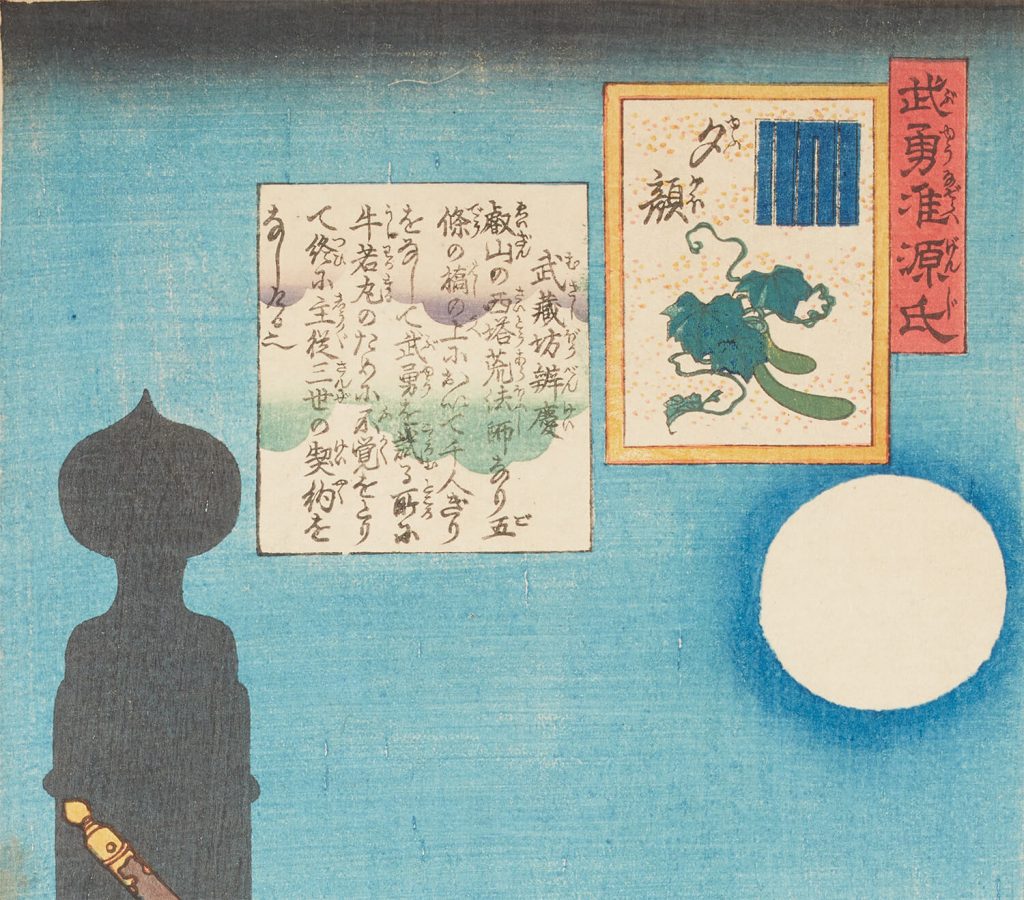 武勇准源氏
夕顔
武蔵坊辨慶
叡山の西塔荒法師なり五
條の橋の上において千人ぎり
をなして武勇を試る所に
牛若丸のために不覚をとり
て終に主従三世の契約を
なしたる